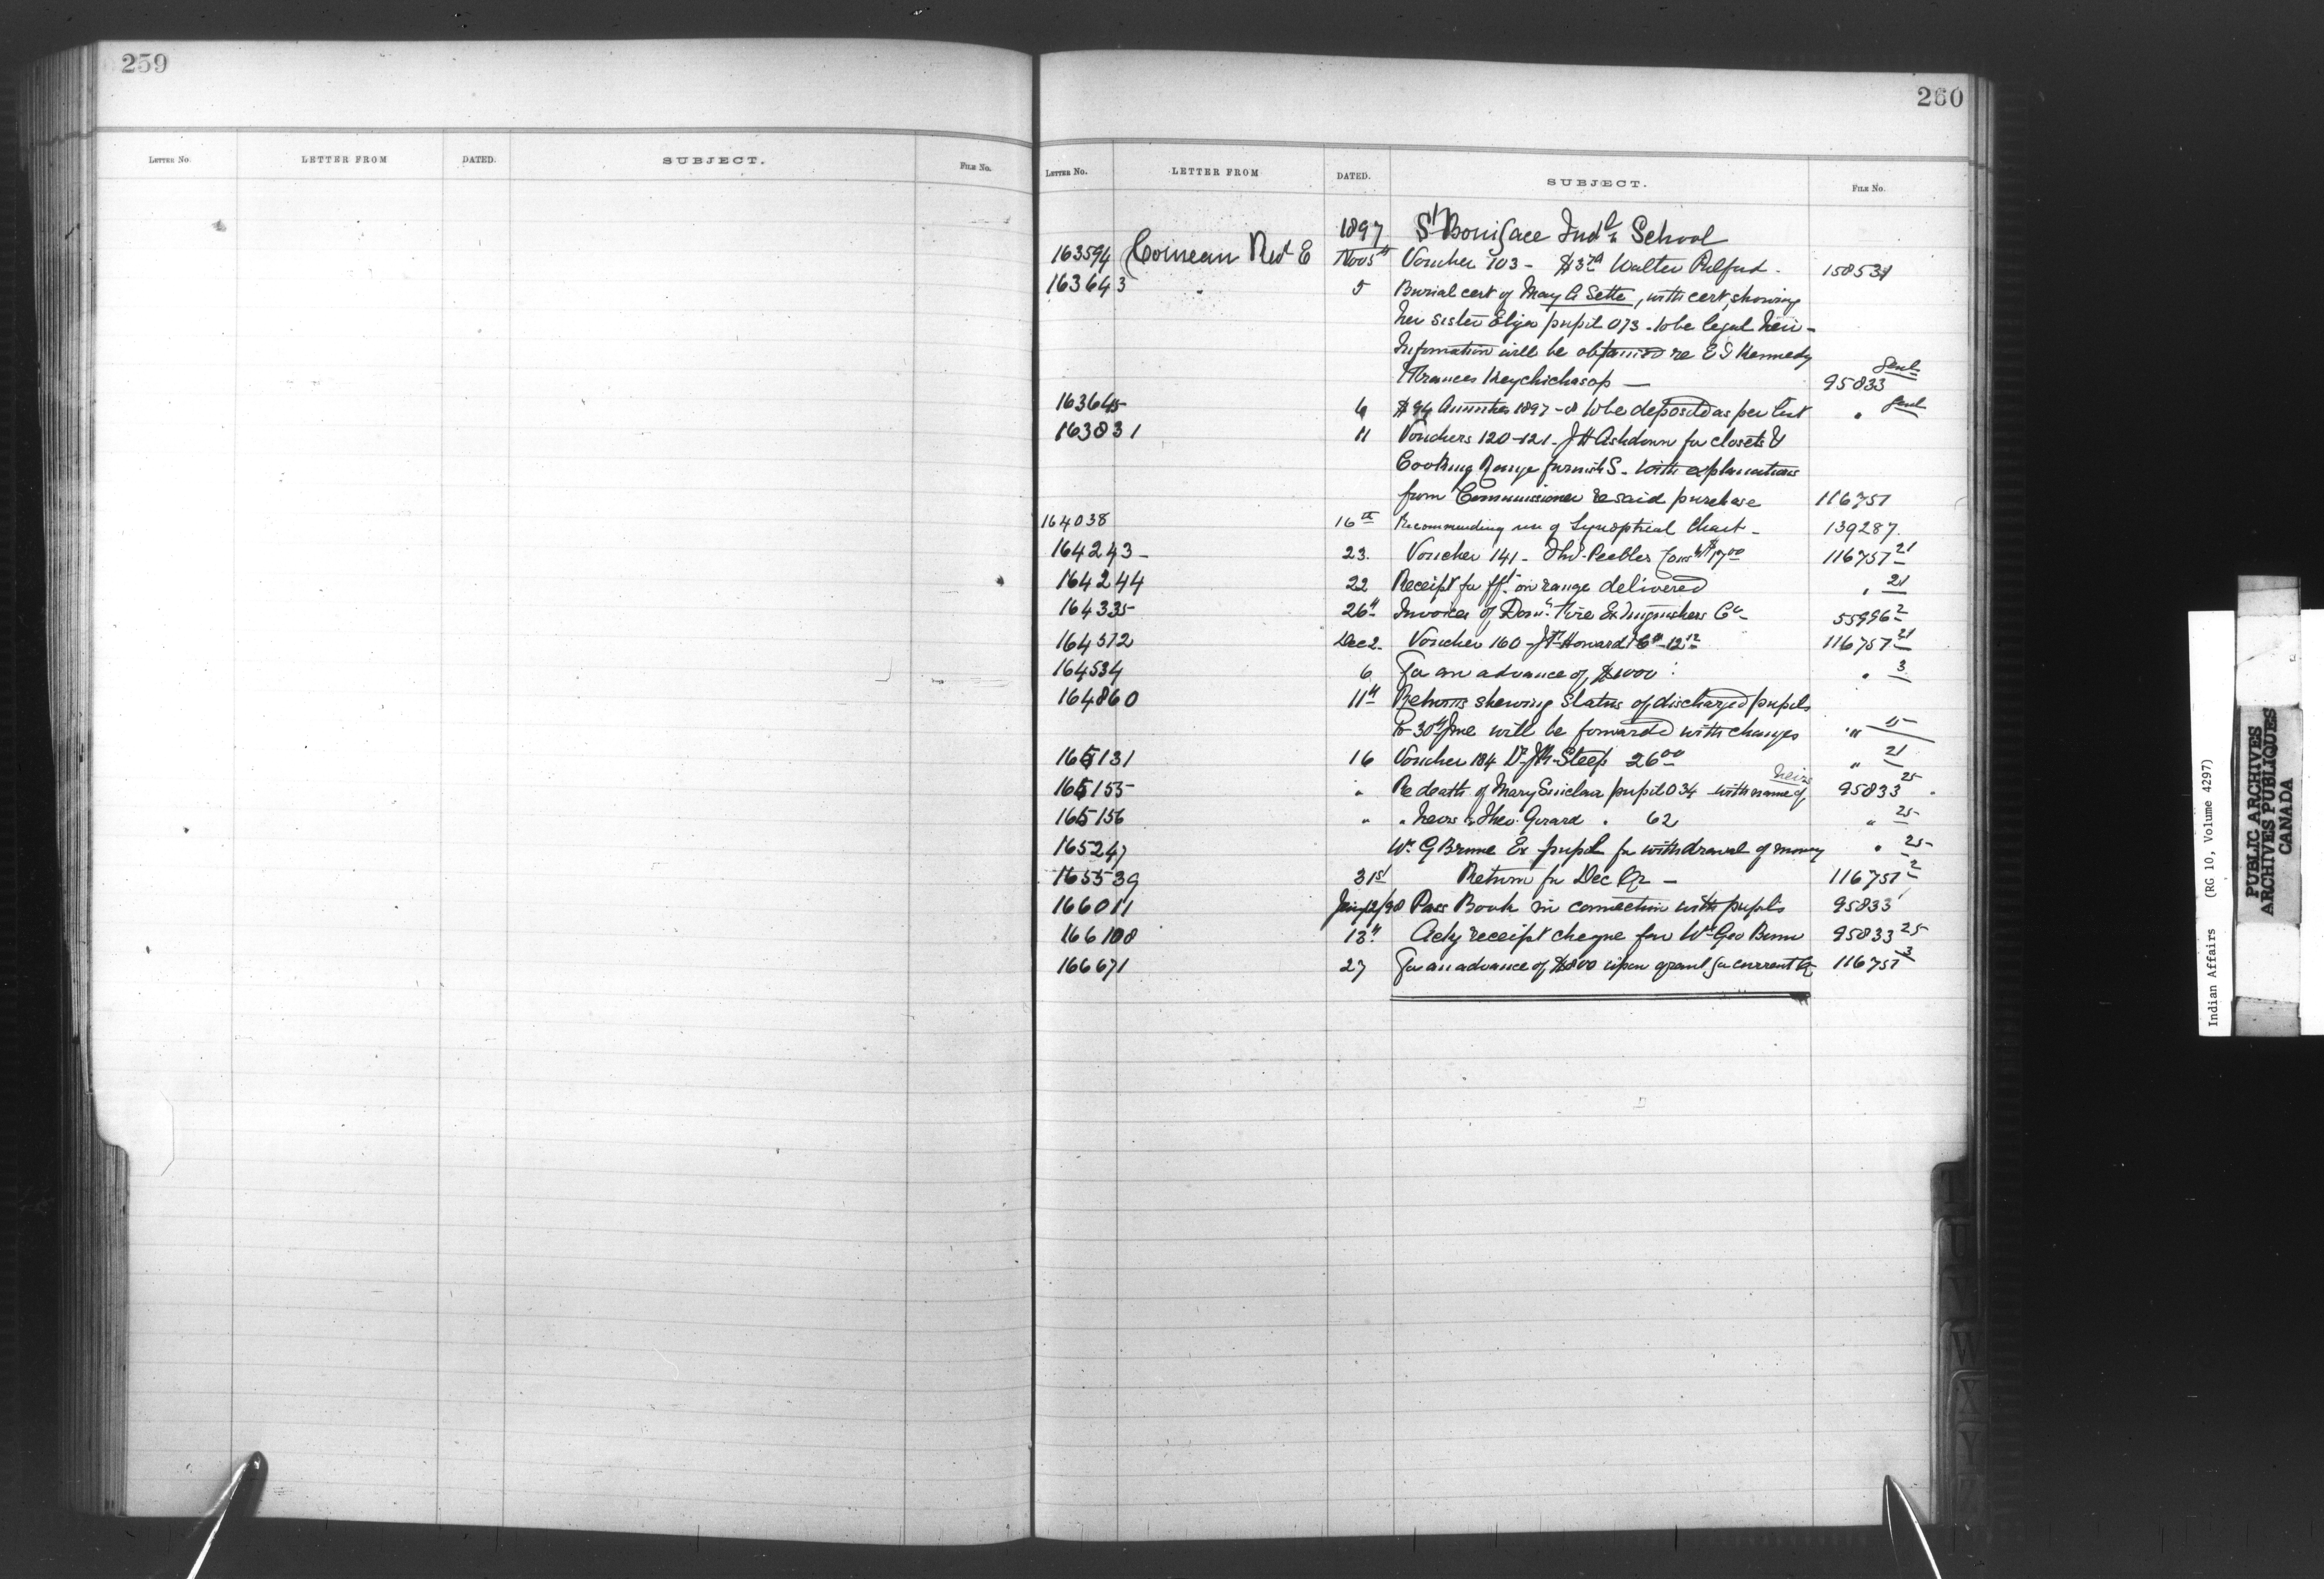 259
LETTER NO. LETTER FROM DATED. SUBJECT. FILE No.
260
LETTER No. LETTER FROM DATED. SUBJECT. FILE No.
1897 St Boniface Indl School
163594 Comeau Revd E Nov 5th Voucher 103 - Walter Pulford. 158531
163643 " 5 Burial cert of Mary A Sette, with cert, showing
her sister Eliza pupil 073 - to be legal heir -
Information will be obtained re E S Kennedy
& Frances Keychichasop — 95833 Genl
163645 6 $94 Annuities 1897-8 to be deposited as per list " Genl
163831 11 Vouchers 120-121 - J H Ashdown for closets &
Cooking Range furnishs. with explanations
from Commissioner re said purchase 116751
164038 16th Recommending use of Synoptical Chart - 139287.
164243 - 23. Voucher 141 - Peebles 17 00 116757 21
164244 22 Receipt for frt on range delivered " 21
164335 26th Invoice of Domn Fire Extinguishers Co 55996 2
164512 Dec 2. Voucher 160 - Howard & Co 12 12 116757 21
164534 6 For an advance of $1000 " 3
164860 11th Returns shewing Status of discharged pupils
to 30th June will be forwarded with changes " 15
165131 16 Voucher 184 Dr J R Steep 26 00 " 21
165155 " Re death of Mary Sinclair pupil 034 with name of heirs 95833 25
165156 " " heirs to Theo. Girard " 62 " 25
165247 Wm G Brune Ex pupil for withdrawal of money " 25
165539 31st Return for Dec Qr - 116751 2
166011 Jany 12/98 Pass Book in connection with pupils 95833
166108 13th Ackg receipt cheque for Wm Geo Brune 95833 25
166671 27 For an advance of $800 upon grant for current Qr 116751 3
U
V
W
X
Y
Z
Indian Affairs (RG 10, Volume 4297)
PUBLIC ARCHIVES
ARCHIVES PUBLIQUES
CANADA